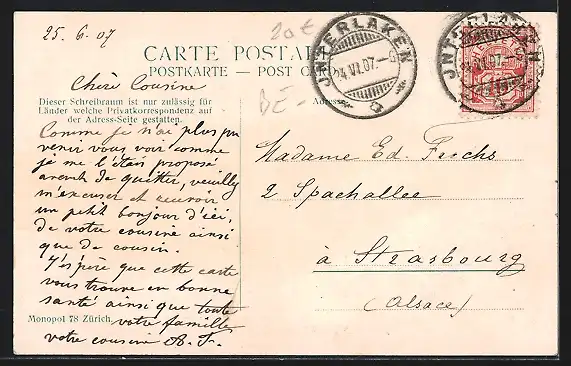 25. 6. 07
20 €
CARTE POSTALE
POSTKARTE — POST CARD
JNTERLAKEN
24.VI.07.—6
JNTERLAKEN
Chère Cousine
Dieser Schreibraum ist nur zulässig für
Länder welche Privatkorrespondenz auf
der Adress-Seite gestatten.
BE -
Adresse
Comme je n'ai plus pu
venir vous voir comme
je me l'étais proposé
avant de quitter, veuillez
m'excuser et recevoir
un petit bonjour d'ici,
de votre cousine ainsi
que de cousin.
J'espère que cette carte
vous trouve en bonne
santé ainsi que toute
votre famille
votre cousine
Monopol 78 Zürich.
Madame Ed. Fuchs
2 Spachallee
à Strasbourg
(Alsace)